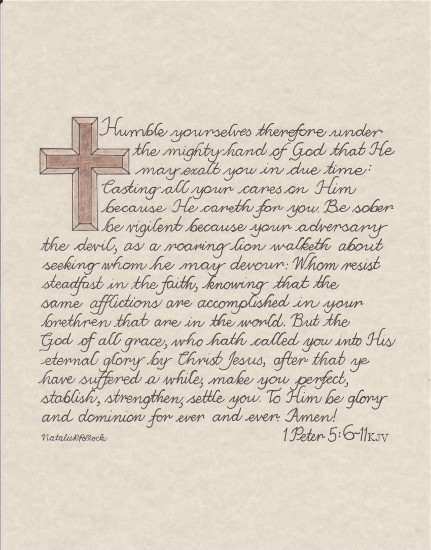 Humble yourselves therefore under
the mighty hand of God that He
may exalt you in due time:
Casting all your cares on Him
because He careth for you. Be sober
be vigilent because your adversary
the devil, as a roaring lion walketh about
seeking whom he may devour: Whom resist
steadfast in the faith, knowing that the
same afflictions are accomplished in your
brethren that are in the world. But the
God of all grace, who hath called you into His
eternal glory by Christ Jesus, after that ye
have suffered a while, make you perfect,
stablish, strengthen, settle you. To Him be glory
and dominion for ever and ever. Amen!
1 Peter 5:6-11 KJV